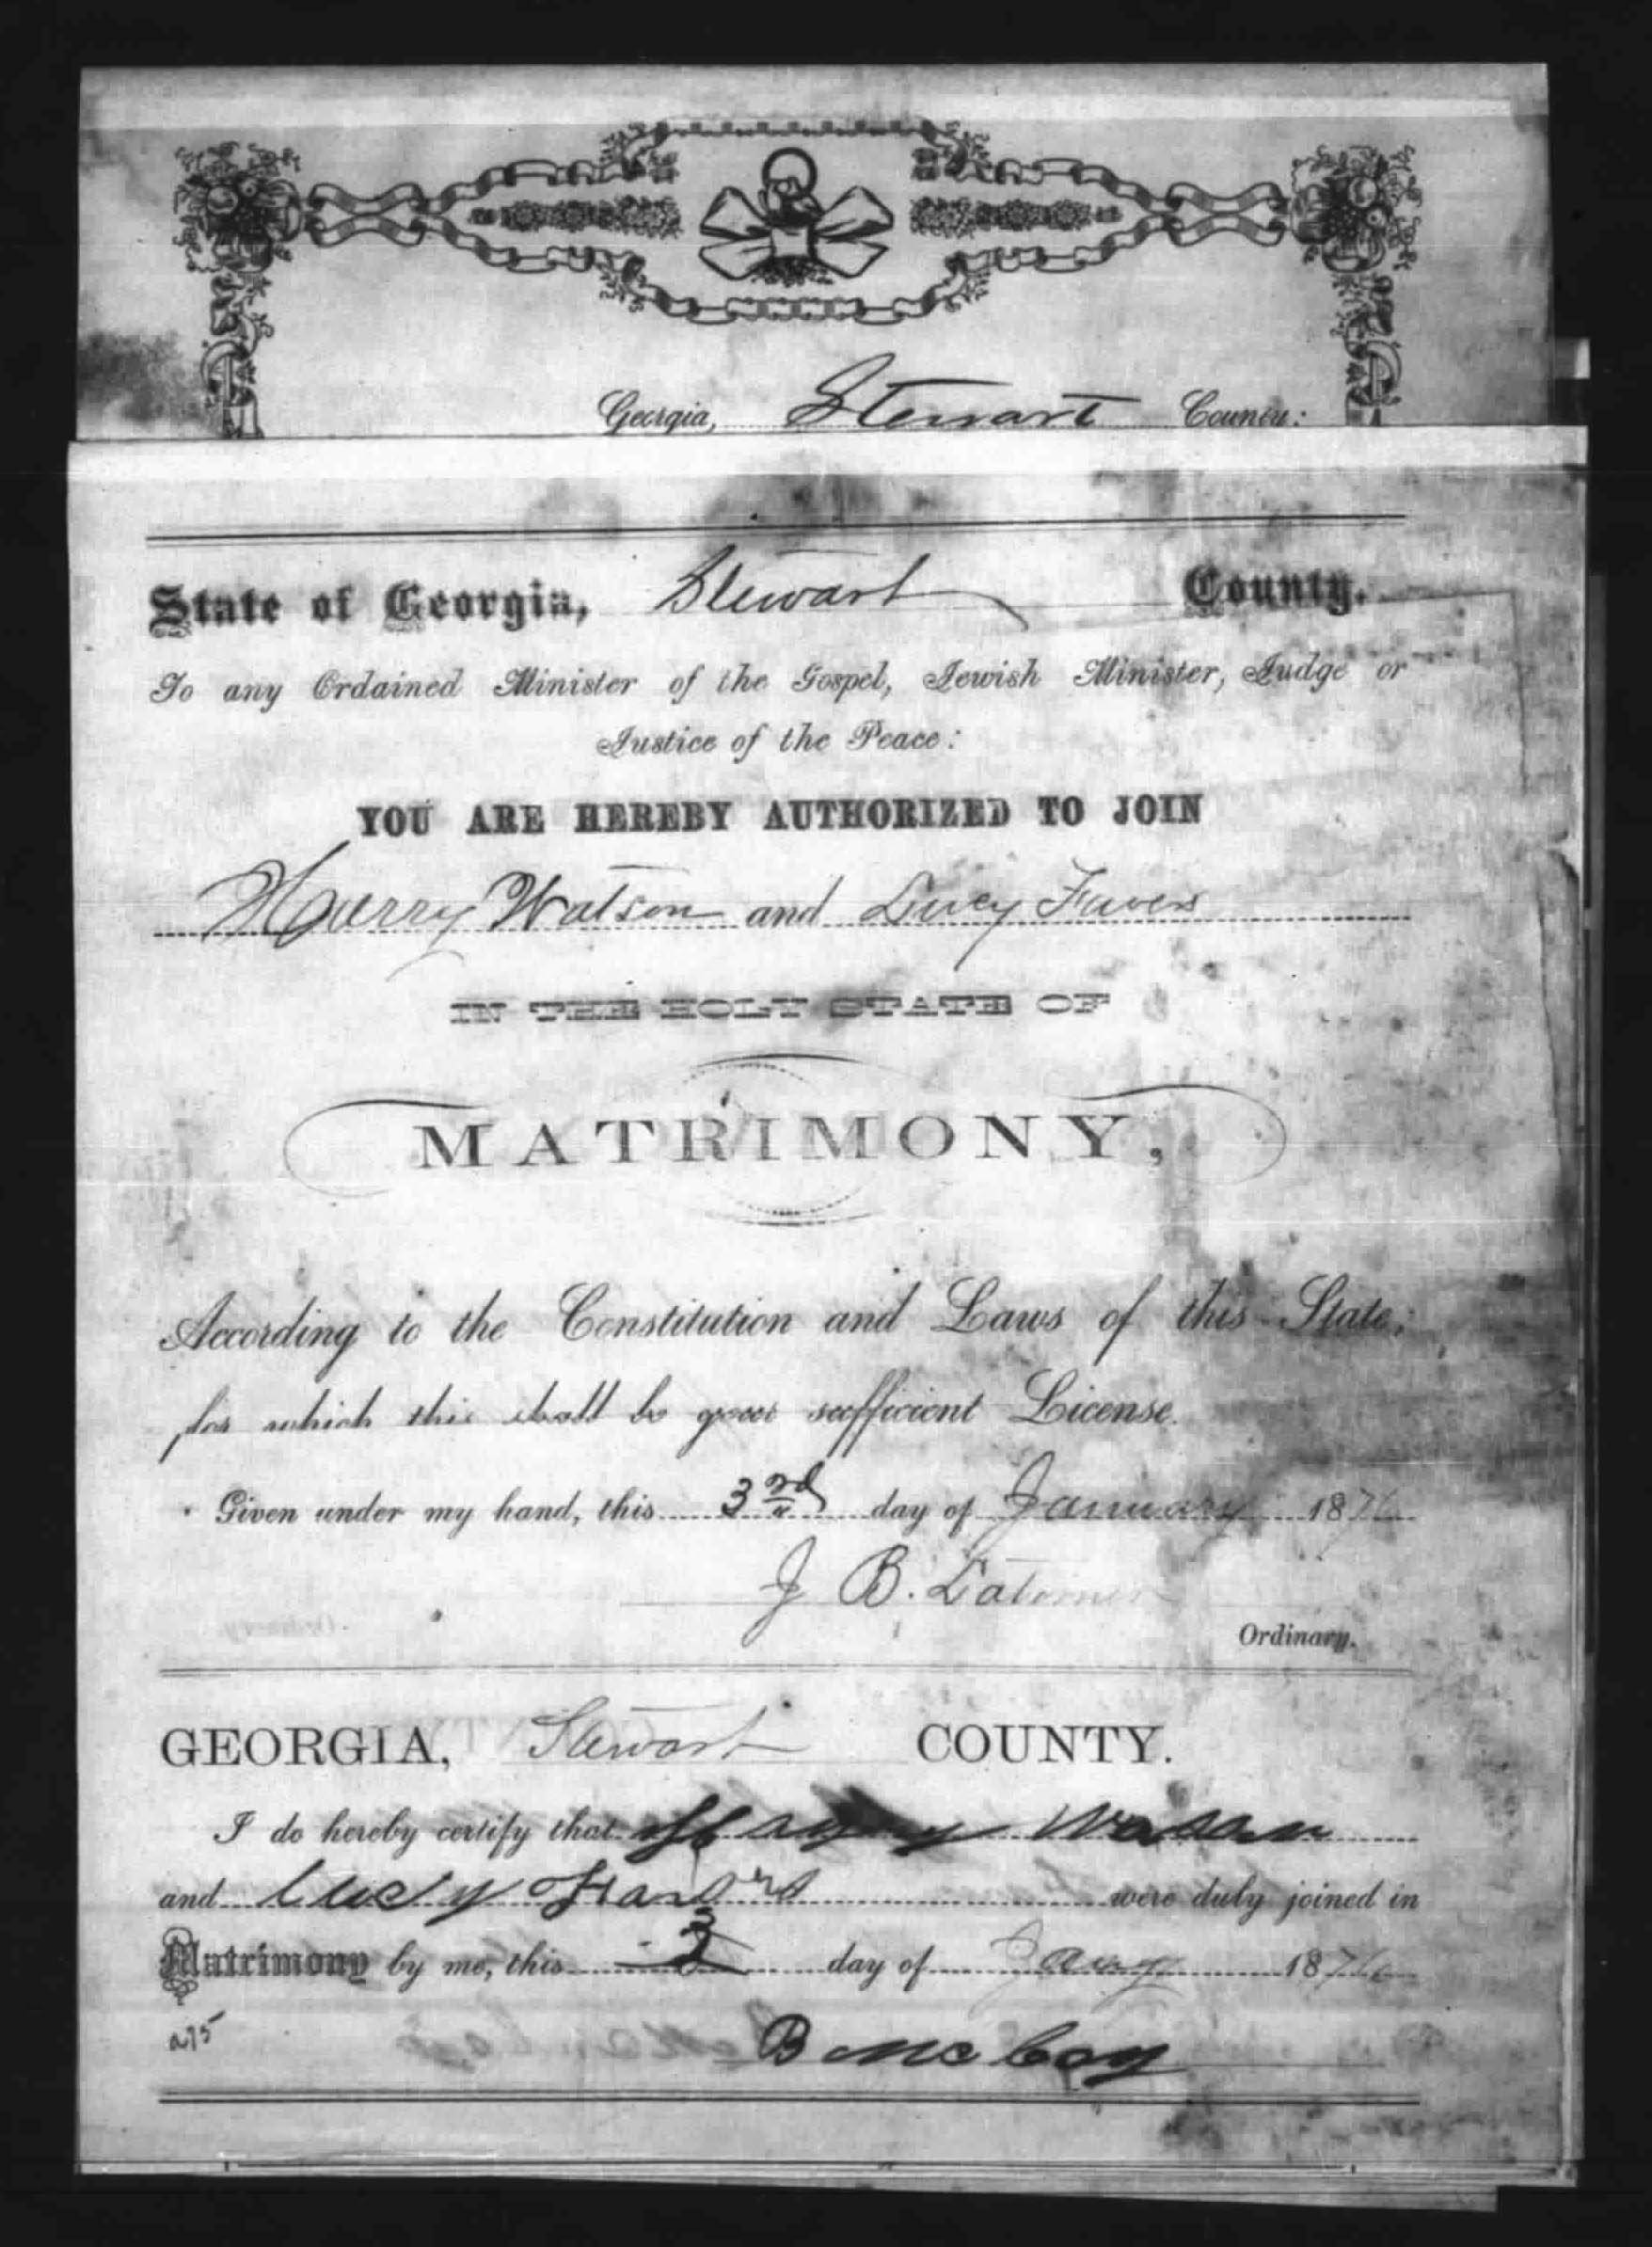 Georgia, Stewart County:
State of Georgia, Stewart County.
To any Ordained Minister of the Gospel, Jewish Minister, Judge or
Justice of the Peace:
YOU ARE HEREBY AUTHORIZED TO JOIN
Harry Watson and Lucy Favers
IN THE HOLY STATE OF
MATRIMONY,
According to the Constitution and Laws of this State;
for which this shall be your sufficient License.
Given under my hand, this 3rd day of January 1876
J B. Latimer
Ordinary.
GEORGIA, Stewart COUNTY.
I do hereby certify that Harry
and Lucy were duly joined in
Matrimony by me, this 3 day of Jany 1876
B McCoy